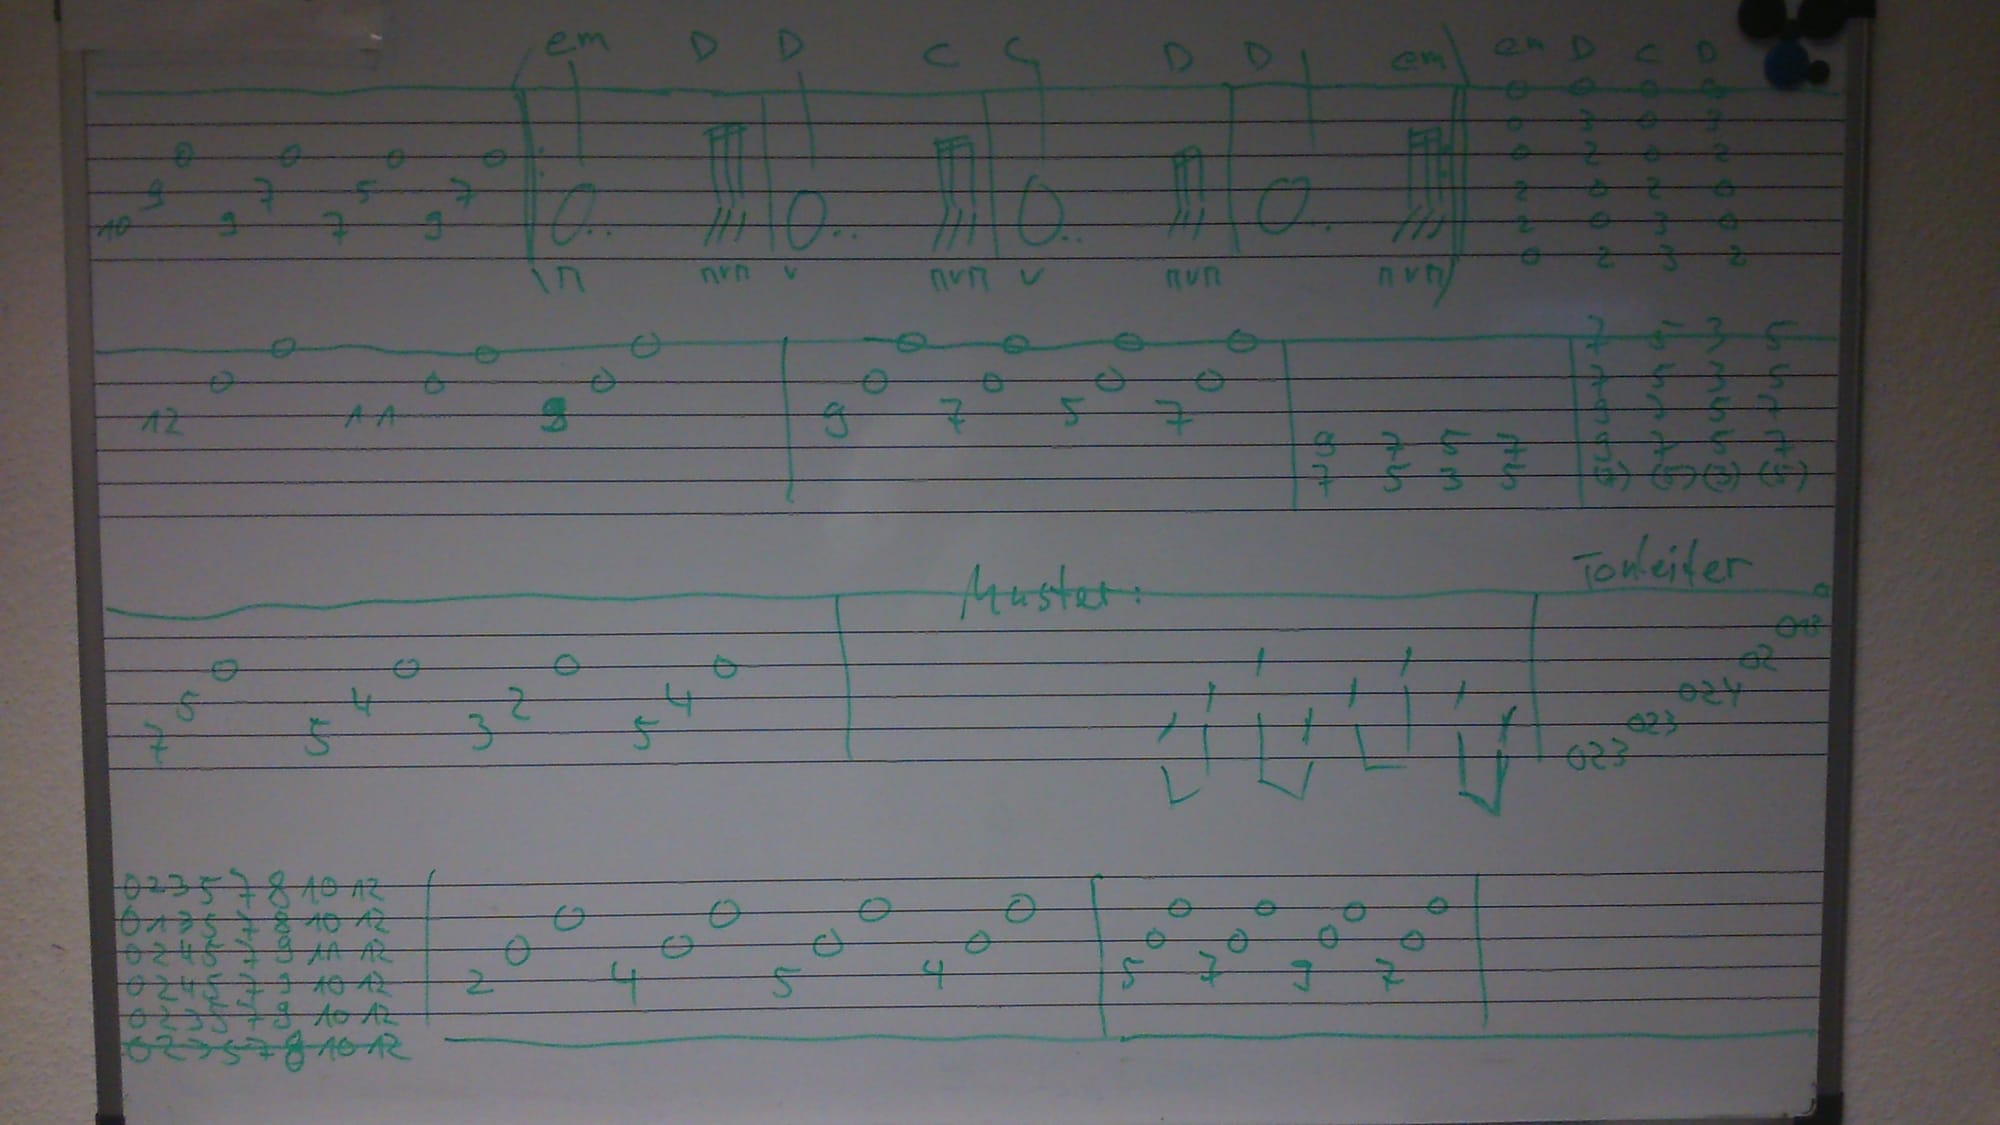 em D D C C D D em em D C D
0 0 0 0
0 3 0 3
0 0 0 0 0 2 0 2
9 7 5 7 2 0 2 0
10 9 7 9 2 0 3 0
0 2 3 2
0 0 0 0 0 0 0 7 5 3 5
0 0 0 0 0 0 0 7 5 3 5
12 11 9 7 5 7 9 7 5 7
9 7 5 7 9 7 5 7
7 5 3 5 (7) (5) (3) (5)
Muster: Tonleiter
0
013
0 0 0 0 02
5 4 2 4 024
7 5 3 5 023
023
0 2 3 5 7 8 10 12
0 1 3 5 7 8 10 12 0 0 0 0 0 0 0 0
0 2 4 5 7 9 11 12 0 0 0 0 0 0 0 0
0 2 4 5 7 9 10 12 2 4 5 4 5 7 9 7
0 2 3 5 7 9 10 12
0 2 3 5 7 8 10 12